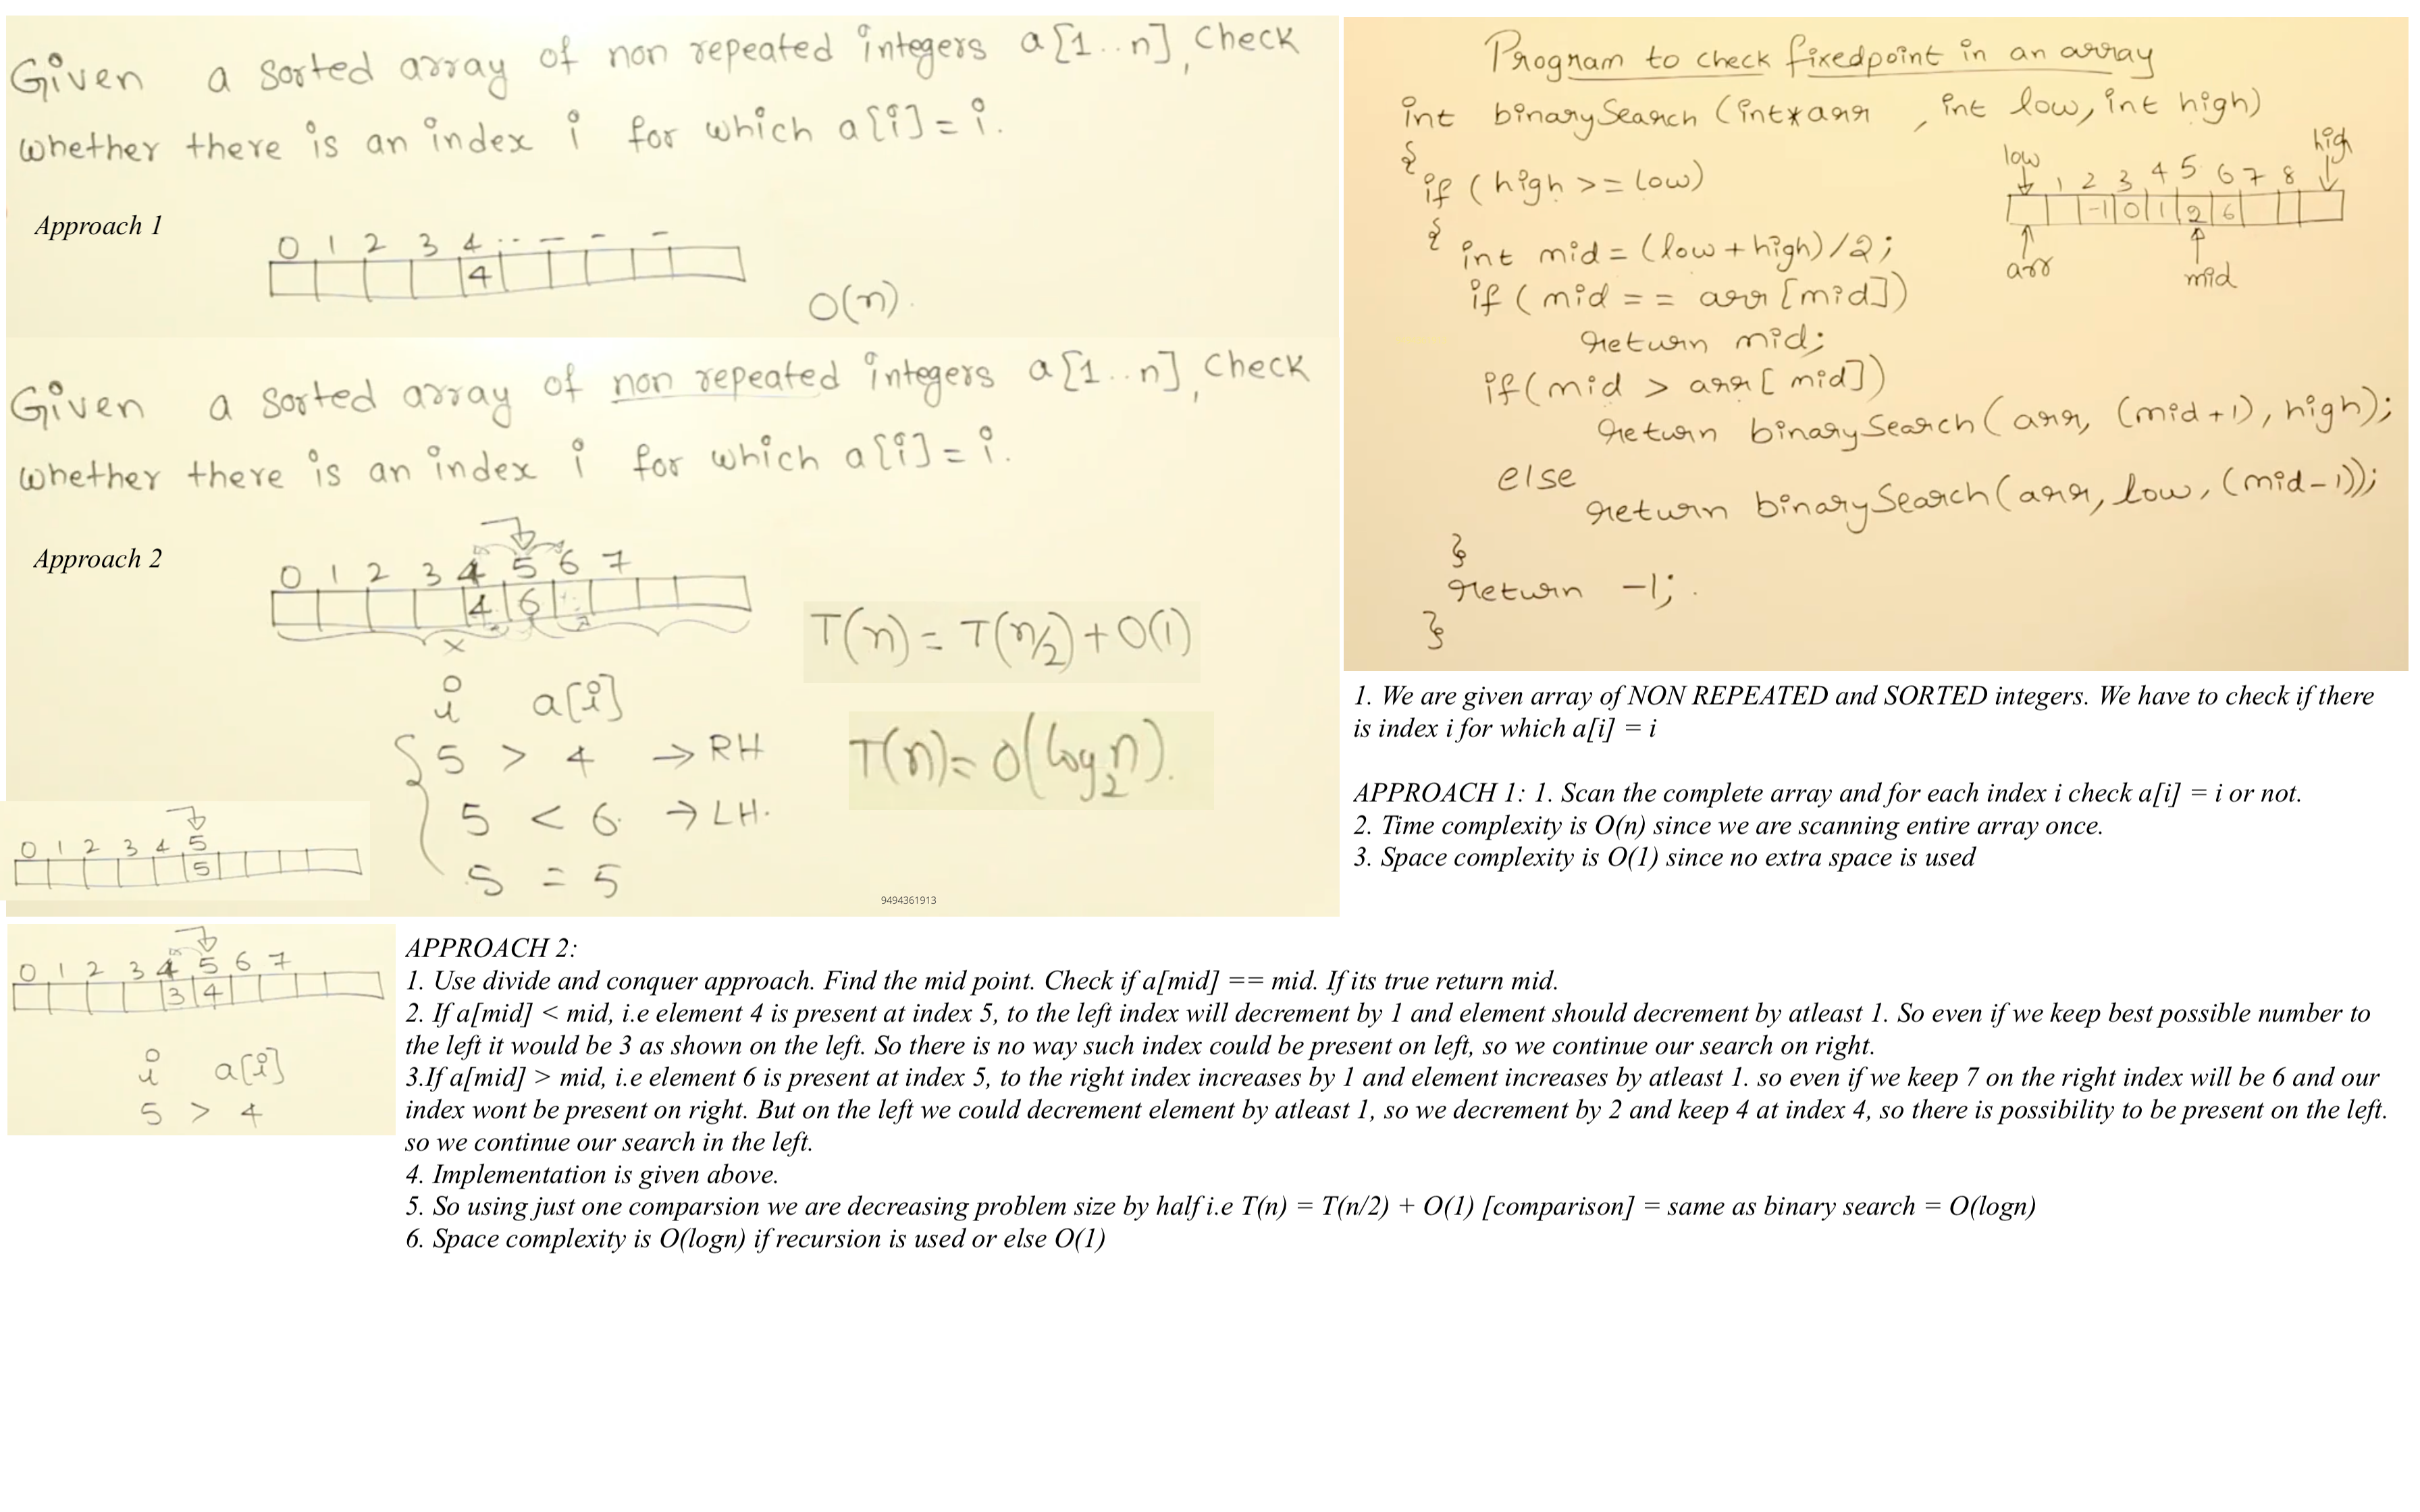 Given a sorted array of non repeated integers a[1..n], check
whether there is an index i for which a[i] = i.
Approach 1
0 1 2 3 4 .. — - —
4
O(n).
Given a sorted array of non repeated integers a[1..n], check
whether there is an index i for which a[i] = i.
Approach 2
0 1 2 3 4 5 6 7
4 6
x
T(n) = T(n/2) + O(1)
i a[i]
5 > 4 → RH
T(n) = O(log₂n).
5 < 6. → LH.
5 = 5
0 1 2 3 4 5
5
9494361913
Program to check fixedpoint in an array
int binarySearch (int*arr , int low, int high)
{
if (high >= low)
{ int mid = (low + high)/2;
if (mid == arr [mid])
return mid;
if (mid > arr [mid])
return binarySearch (arr, (mid+1), high);
else
return binarySearch (arr, low, (mid-1));
}
return -1;
}
low high
1 2 3 4 5 6 7 8
-1 0 1 2 6
arr mid
1. We are given array of NON REPEATED and SORTED integers. We have to check if there
is index i for which a[i] = i
APPROACH 1: 1. Scan the complete array and for each index i check a[i] = i or not.
2. Time complexity is O(n) since we are scanning entire array once.
3. Space complexity is O(1) since no extra space is used
0 1 2 3 4 5 6 7
3 4
i a[i]
5 > 4
APPROACH 2:
1. Use divide and conquer approach. Find the mid point. Check if a[mid] == mid. If its true return mid.
2. If a[mid] < mid, i.e element 4 is present at index 5, to the left index will decrement by 1 and element should decrement by atleast 1. So even if we keep best possible number to
the left it would be 3 as shown on the left. So there is no way such index could be present on left, so we continue our search on right.
3.If a[mid] > mid, i.e element 6 is present at index 5, to the right index increases by 1 and element increases by atleast 1. so even if we keep 7 on the right index will be 6 and our
index wont be present on right. But on the left we could decrement element by atleast 1, so we decrement by 2 and keep 4 at index 4, so there is possibility to be present on the left.
so we continue our search in the left.
4. Implementation is given above.
5. So using just one comparsion we are decreasing problem size by half i.e T(n) = T(n/2) + O(1) [comparison] = same as binary search = O(logn)
6. Space complexity is O(logn) if recursion is used or else O(1)